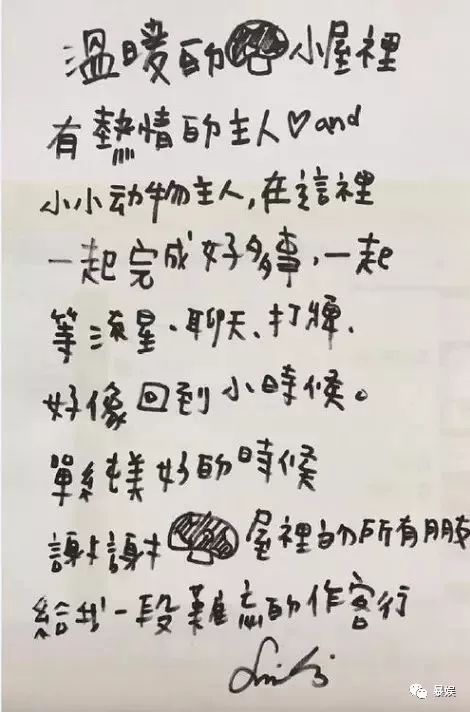 溫暖的小屋裡
有熱情的主人♡and
小小动物主人,在這裡
一起完成好多事,一起
等流星、聊天、打牌、
好像回到小時候。
單純美好的時候
謝謝屋裡的所有朋友
給我一段難忘的作客行
暴娱